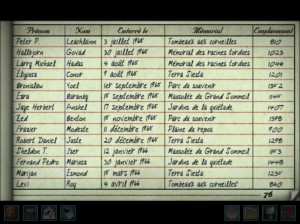 Prénom Nom Enterré le Mémorial Emplacement
Peter P. Leachbainn 3 juillet 1965 Tombeaux aux corneilles 810
Hallbjorn Govad 30 juillet 1965 Mémorial des racines tordues 1023
Larry Michael Hadas 4 août 1965 Mémorial des racines tordues 1044
Eligiusa Conor 9 août 1965 Terra Siesta 1201
Bronislaw Yoel 1er septembre 1965 Parc du souvenir 1352
Ezra Baranby 15 septembre 1965 Mausolée du Grand Sommeil
Jaye Herbert Anshel 17 septembre 1965 Jardins de la quiétude 1407
Led Benton 15 novembre 1965 Parc du souvenir 1398
Frasier Modeste 11 décembre 1965 Plaine du repos 900
Robert Daniel Joste 20 décembre 1965 Terra Siesta 1298
Sheldon T. Iser 12 janvier 1966 Mausolée du Grand Sommeil 853
Fernand Pedro Marissa 30 janvier 1966 Jardins de la quiétude 1448
Marijan Esmond 15 mars 1966 Terra Siesta 1235
Levi Roy 4 avril 1966 Tombeaux aux corneilles 840
76